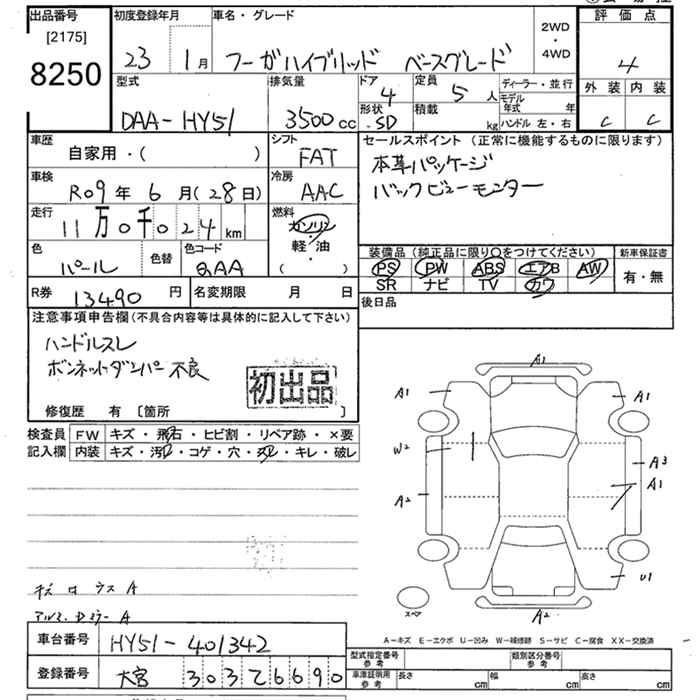 出品番号
[2175]
8250
初度登録年月
23 1月
車名・グレード
フーガハイブリッド ベースグレード
2WD
・
4WD
評価点
4
外装 内装
C C
型式
DAA-HY51
排気量
3500cc
ドア
4
形状
SD
定員
5人
積載
kg
ディーラー・並行
モデル年式 年
ハンドル 左・右
車歴
自家用・( )
シフト
FAT
セールスポイント (正常に機能するものに限ります)
本革パッケージ
バックビューモニター
車検
R09年 6月(28日)
冷房
AAC
走行
11万0千024km
燃料
ガソリン
・
軽・油
( )
色
パール
色替
色コード
QAA
装備品(純正品に限り○をつけてください)
PS PW ABS エアB AW
SR ナビ TV カワ
新車保証書
有・無
R券
13490円
名変期限 月 日
後日品
注意事項申告欄(不具合内容等は具体的に記入して下さい)
ハンドルスレ
ボンネットダンパー不良
初出品
修復歴 有 [箇所 ]
検査員記入欄
FW キズ・飛石・ヒビ割・リペア跡・×要
内装 キズ・汚れ・コゲ・穴・スレ・キレ・破レ
A1
A1
A1
W2
A3
A1
A2
U1
A2
スペア
A-キズ E-エクボ U-凹み W-補修跡 S-サビ C-腐食 XX-交換済
車台番号
HY51-401342
登録番号
大宮 303 6690
型式指定番号 参考
類別区分番号 参考
車庫証明用 参考
長さ cm
幅 cm
高さ cm